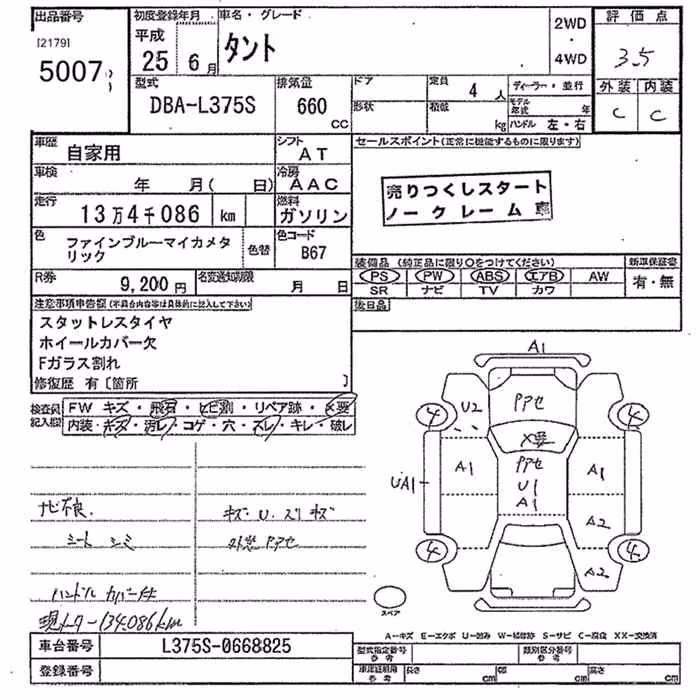 出品番号
[2179]
5007
初度登録年月
平成
25年 6月
車名・グレード
タント
2WD
・
4WD
評価点
3.5
型式
DBA-L375S
排気量
660
CC
ドア
形状
定員
4人
積載
kg
ディーラー・並行
モデル年式 年
ハンドル 左・右
外装 内装
C C
車歴
自家用
シフト
AT
セールスポイント(正常に機能するものに限ります)
車検
年 月( 日)
冷房
AAC
売りつくしスタート
ノークレーム
走行
13万4千086 km
燃料
ガソリン
色
ファインブルーマイカメタリック
色替
色コード
B67
装備品(純正品に限り○をつけてください)
PS PW ABS エアB AW
SR ナビ TV カワ
新車保証書
有・無
R券
9,200円
名変通知期限
月 日
後日品
注意事項申告欄(不具合内容等は具体的に記入して下さい)
スタットレスタイヤ
ホイールカバー欠
Fガラス割れ
修復歴 有〔箇所 〕
検査員記入欄
FW キズ・飛石・ヒビ割・リペア跡・×要
内装・キズ・汚レ・コゲ・穴・スレ・キレ・破レ
ナビ不良.
シート シミ
ハンドル カバー付
現メーター134,086km
キズ・U・スリキズ
外装 PアセA1
U2
Pアセ
4
4
×要
A1
Pアセ
U1
A1
A1
UA1
A2
4
4
A2
スペア
A-キズ E-エクボ U-凹み W-補修跡 S-サビ C-腐食 XX-交換済
車台番号
L375S-0668825
登録番号
型式指定番号
参考
類別区分番号
参考
車庫証明用
参考
長さ cm
幅 cm
高さ cm